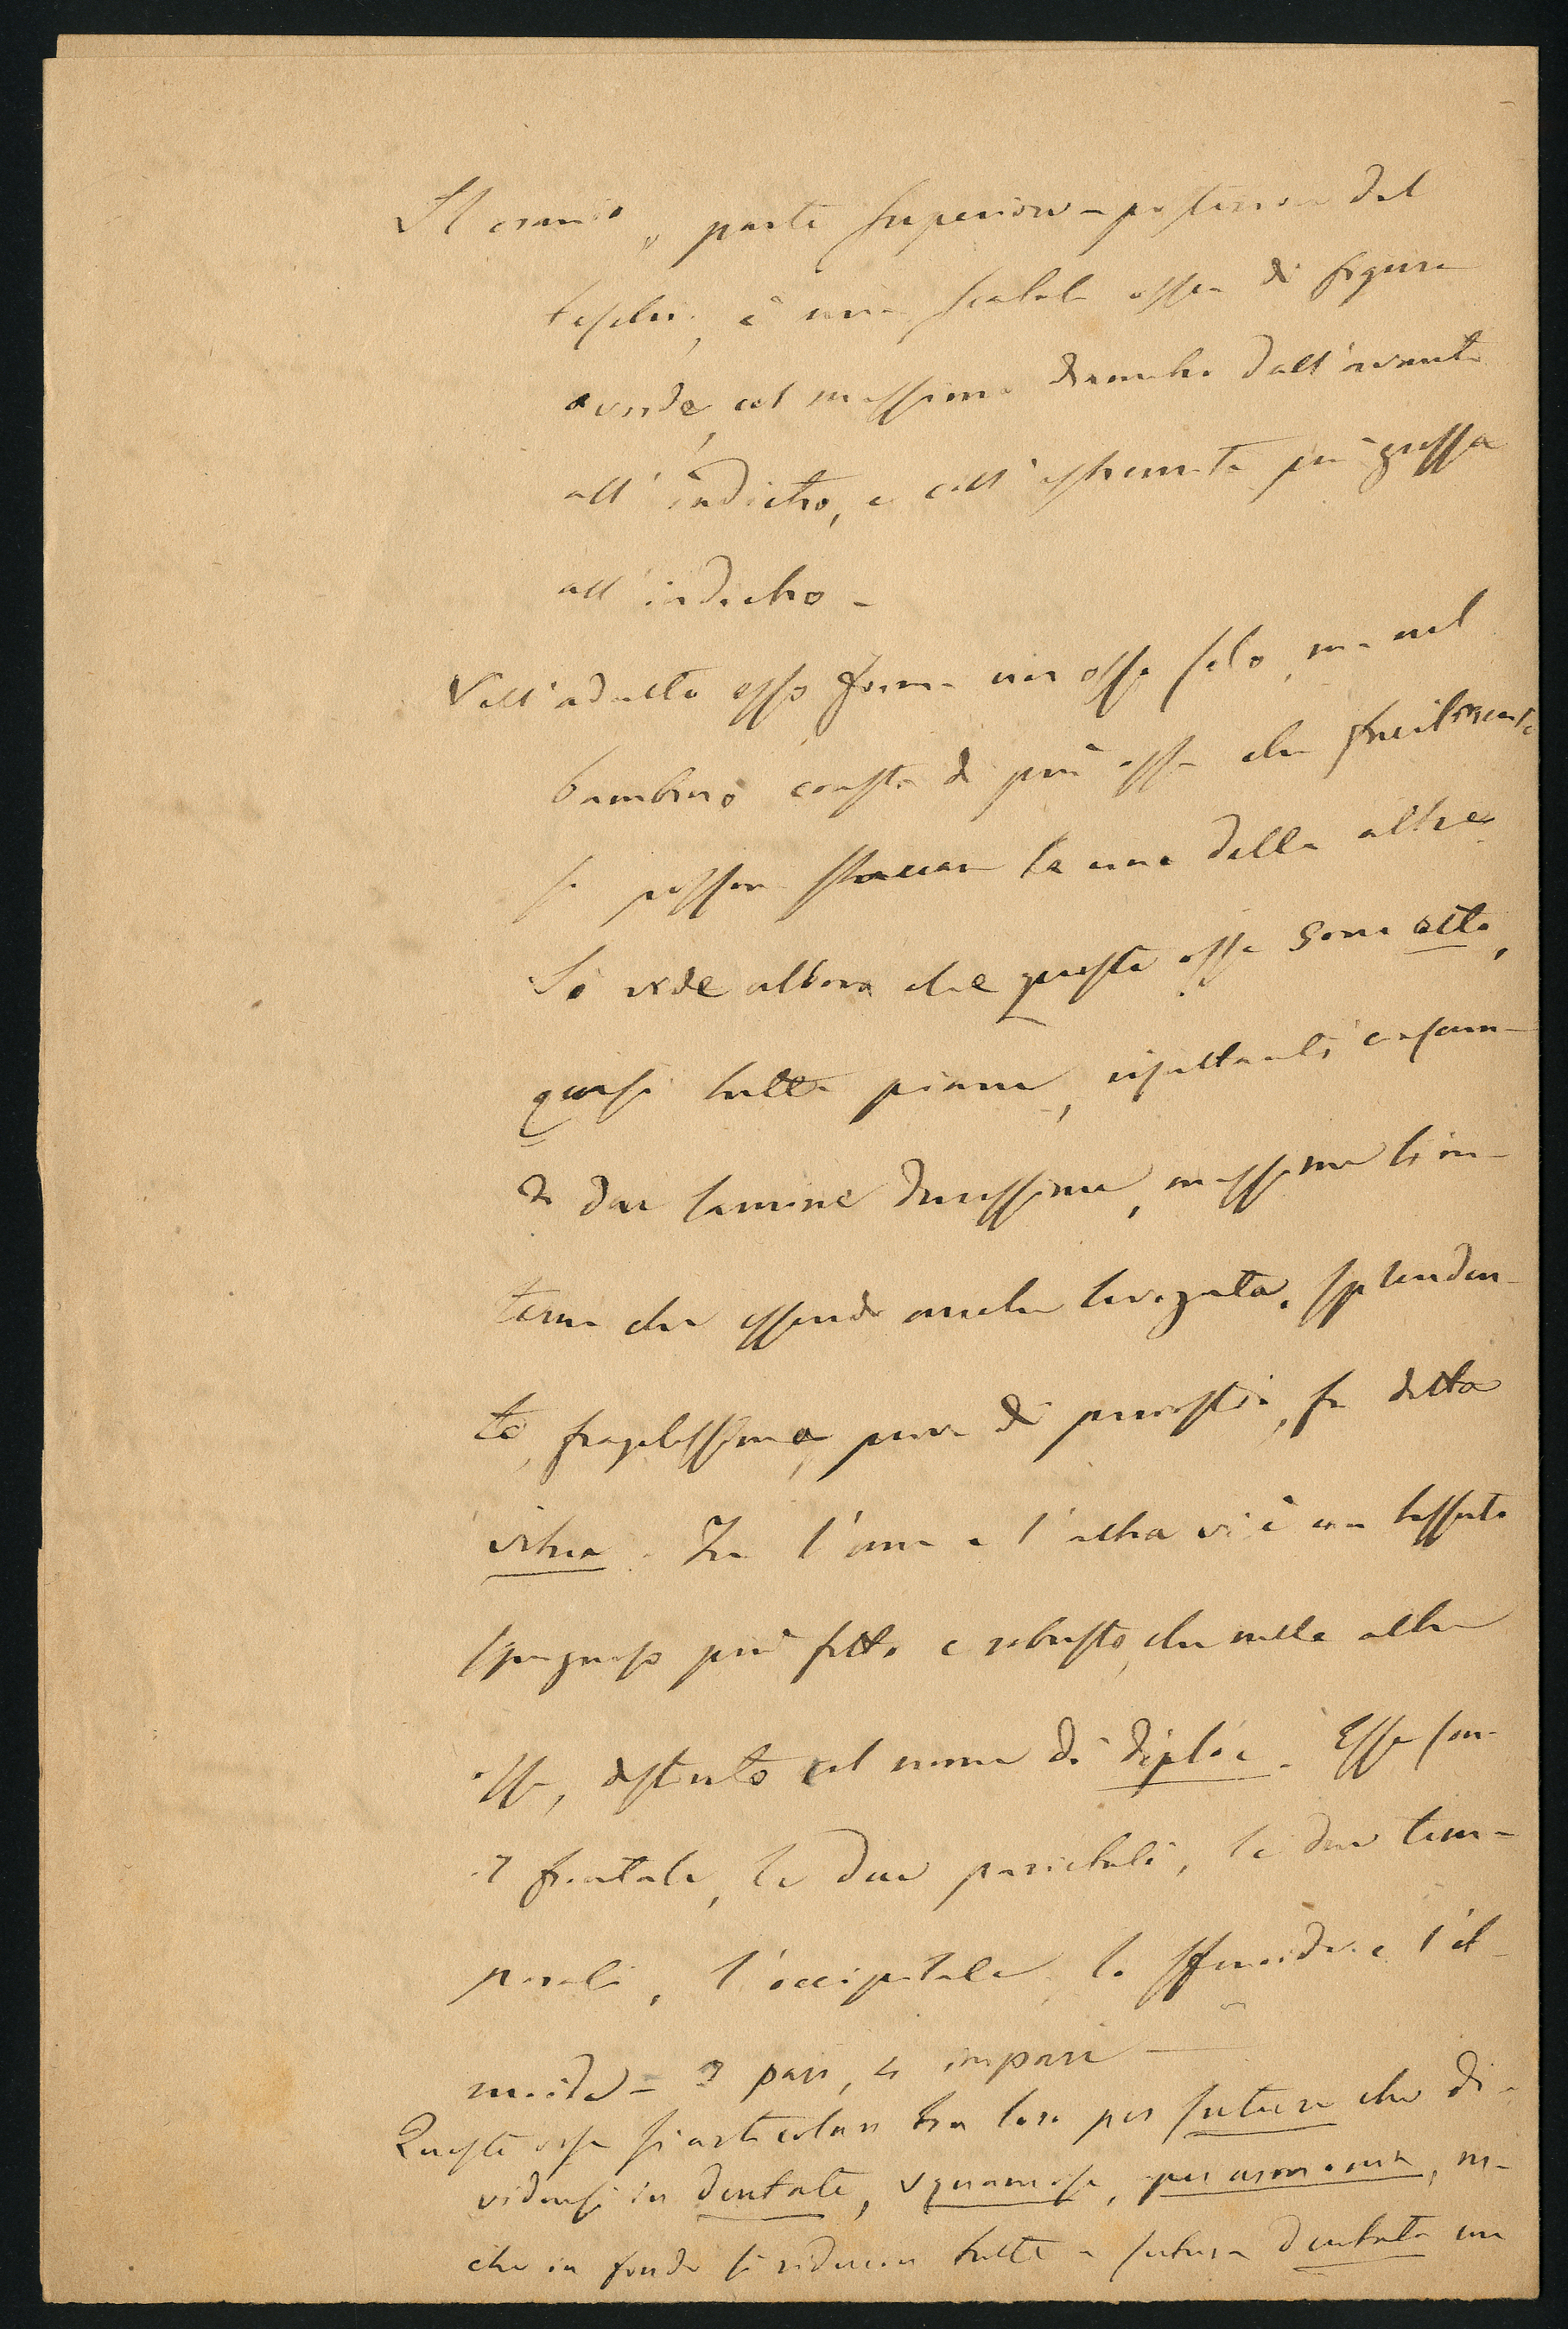 Il cranio, parte superiore-posteriore del
teschio, è una scatola ossea di figura
ovoide, col massimo diametro dall'avanti
all'indietro, e coll'estremità più grossa
all'indietro -
Nell'adulto esso forma un osso solo, ma nel
bambino consta di più ossa che facilmente
si posson staccare la una dalla altre.
Si vede allora che queste ossa sono otto,
quasi tutte piane, risultanti ciascun-
a da due lamine durissime, massime l'in-
terna che essendo anche levigata, splenden-
te, fragilissima, priva di periostio, fu detta
vitrea. Fra l'una e l'altra vi è un tessuto
spugnoso più fitto e robusto, che nelle altre
ossa, distinto col nome di diploe. Esse son
il frontale, le due parietali, le due tem-
porali, l'occipitale, lo sfenoide e l'et-
moide - 2 pari, 4 impari -
Queste ossa si articolan tra loro per suture che di-
vidonsi in dentate, squamose, per armonia, ma
che in fondo si riducon tutte a sutura dentata ma